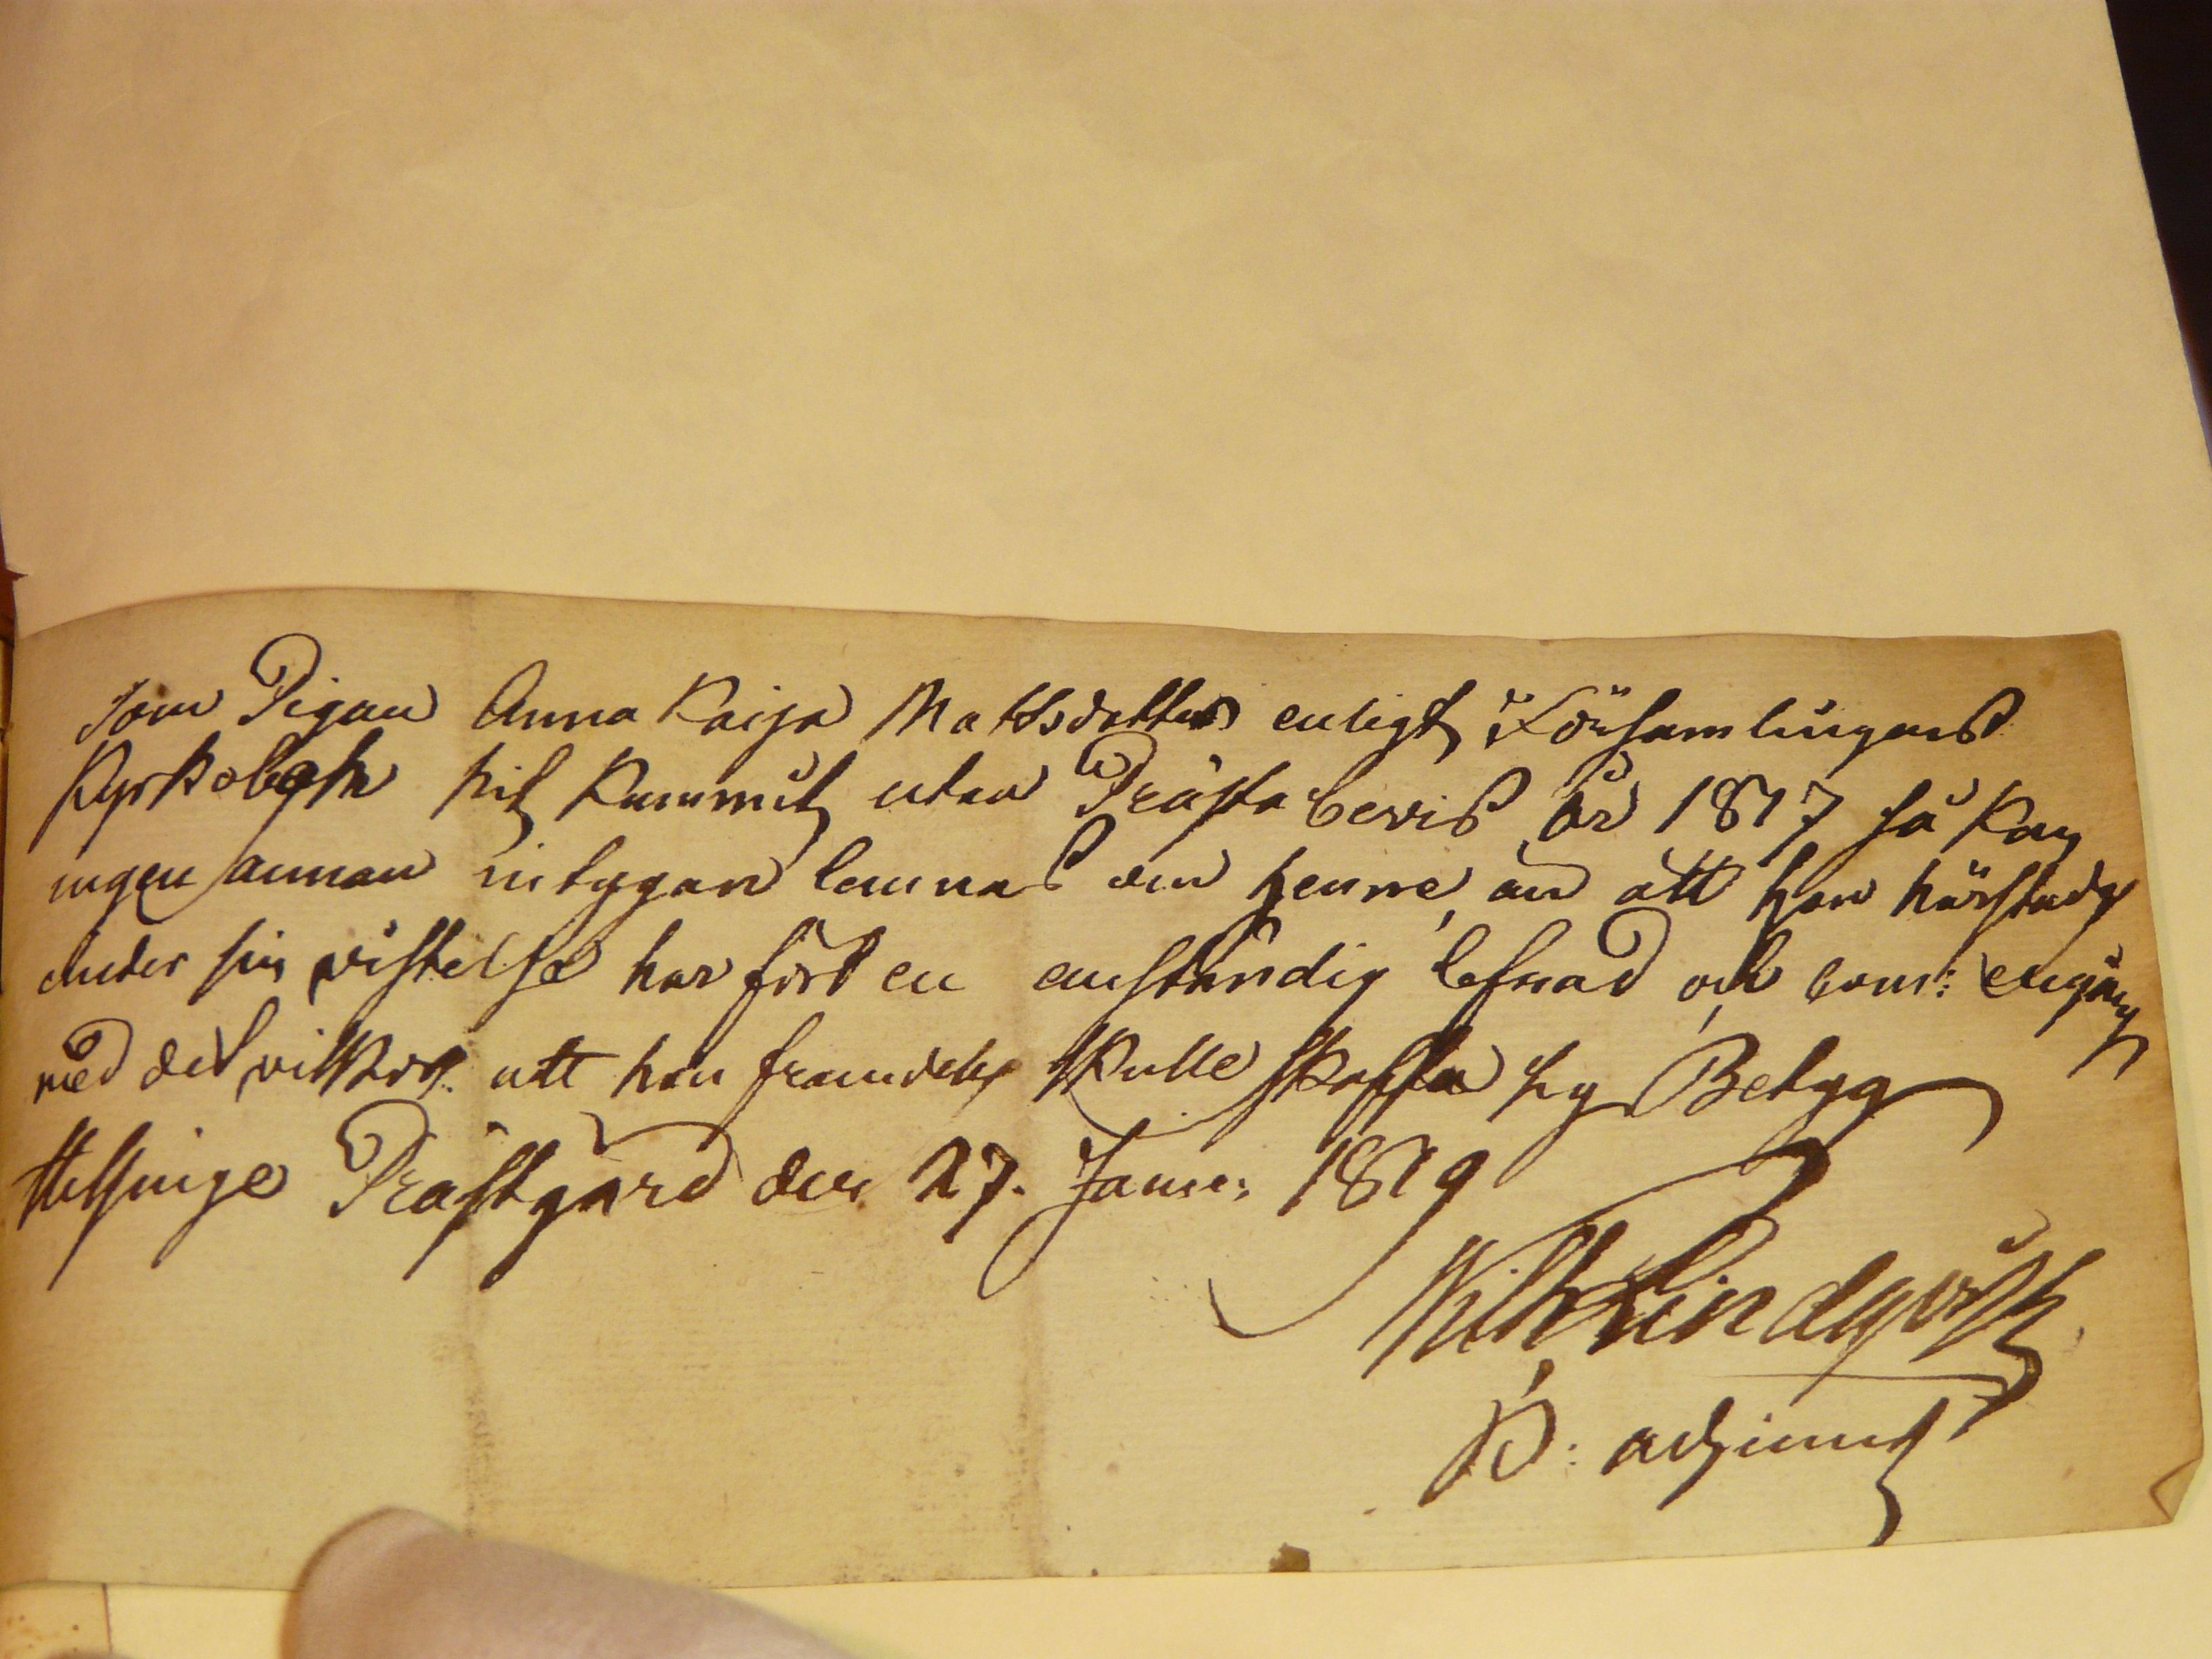 Som Pigan Anna Kaisa Mattsdotter enligt Församlingens
Kyrkobok hit kummit utan Prästabevis år 1817 så kan
ingen annan intygan lemnas om henne, än att hon härstädes
under sin vistelse har fört en anständig lefnad och com: engång
med det vilkor att hon framdeles skulle skaffa sig Betyg
Helsinge Prästgård den 27. Janu: 1819
Wilh Lindqvist
P: adjunct